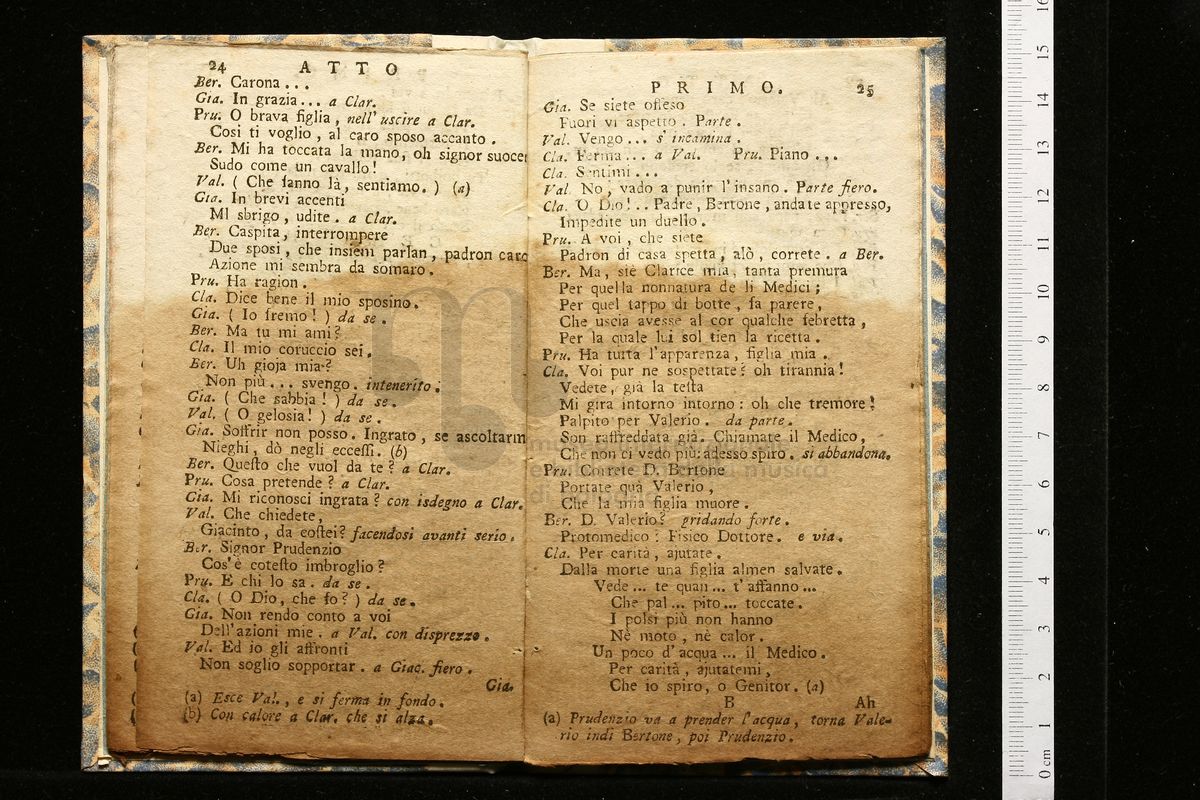 24 ATTO
Ber. Carona ...
Gia. In grazia ... a Clar.
Pru. O brava figlia, nell' uscire a Clar.
Cosi ti voglio, al caro sposo accanto.
Ber. Mi ha toccata la mano, oh signor suocer
Sudo come un cavallo!
Val. ( Che fanno là, sentiamo. ) (a)
Gia. In brevi accenti
MI sbrigo, udite. a Clar.
Ber. Caspita, interrompere
Due sposi, che insiem parlan, padron caro
Azione mi sembra da somaro.
Pru. Ha ragion.
Cla. Dice bene il mio sposino.
Gia. ( Io fremo! ) da se.
Ber. Ma tu mi ami?
Cla. Il mio coruccio sei.
Ber. Uh gioja mia?
Non più ... svengo. intenerito.
Gia. ( Che sabbia! ) da se.
Val. ( O gelosia! ) da se.
Gia. Soffrir non posso. Ingrato, se ascoltarm
Nieghi, dò negli eccessi. (b)
Ber. Questo che vuol da te? a Clar.
Pru. Cosa pretende? a Clar.
Gia. Mi riconosci ingrata? con isdegno a Clar.
Val. Che chiedete,
Giacinto, da costei? facendosi avanti serio.
Ber. Signor Prudenzio
Cos'è cotesto imbroglio?
Pru. E chi lo sa. da se.
Cla. ( O Dio, che fo? ) da se.
Gia. Non rendo conto a voi
Dell'azioni mie. a Val. con disprezzo.
Val. Ed io gli affronti
Non soglio sopportar. a Giac. fiero.
Gia.
(a) Esce Val., e si ferma in fondo.
(b) Con calore a Clar. che si alza.
PRIMO. 25
Gia. Se siete offeso
Fuori vi aspetto. Parte.
Val. Vengo ... s' incamina.
Cla. Ferma ... a Val. Pru. Piano ...
Cla. Sentimi ...
Val. No, vado a punir l'insano. Parte fiero.
Cla. O Dio! .. Padre, Bertone, andate appresso,
Impedite un duello.
Pru. A voi, che siete
Padron di casa spetta, alò, correte. a Ber.
Ber. Ma, siè Clarice mia, tanta premura
Per quella nonnatura de li Medici;
Per quel tappo di botte, fa parere,
Che uscia avesse al cor qualche febretta,
Per la quale lui sol tien la ricetta.
Pru. Ha tutta l'apparenza, figlia mia.
Cla. Voi pur ne sospettate? oh tirannia!
Vedete, già la testa
Mi gira intorno intorno: oh che tremore!
Palpito per Valerio. da parte.
Son raffreddata già. Chiamate il Medico,
Che non ci vedo più: adesso spiro. si abbandona.
Pru. Correte D. Bertone
Portate quà Valerio,
Che la mia figlia muore.
Ber. D. Valerio? gridando forte.
Protomedico: Fisico Dottore. e via.
Cla. Per carità, ajutate.
Dalla morte una figlia almen salvate.
Vede ... te quan ... t'affanno ...
Che pal ... pito ... toccate.
I polsi più non hanno
Nè moto, nè calor.
Un poco d'acqua ... il Medico.
Per carità, ajutatemi,
Che io spiro, o Genitor. (a)
B Ah
(a) Prudenzio va a prender l'acqua, torna Vale-
rio indi Bertone, poi Prudenzio.
0 cm 1 2 3 4 5 6 7 8 9 10 11 12 13 14 15 16